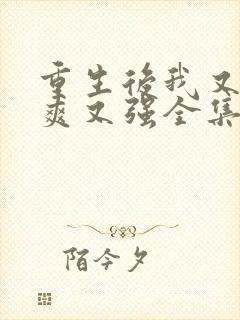 重生後我又
爽又强全集
陌今夕